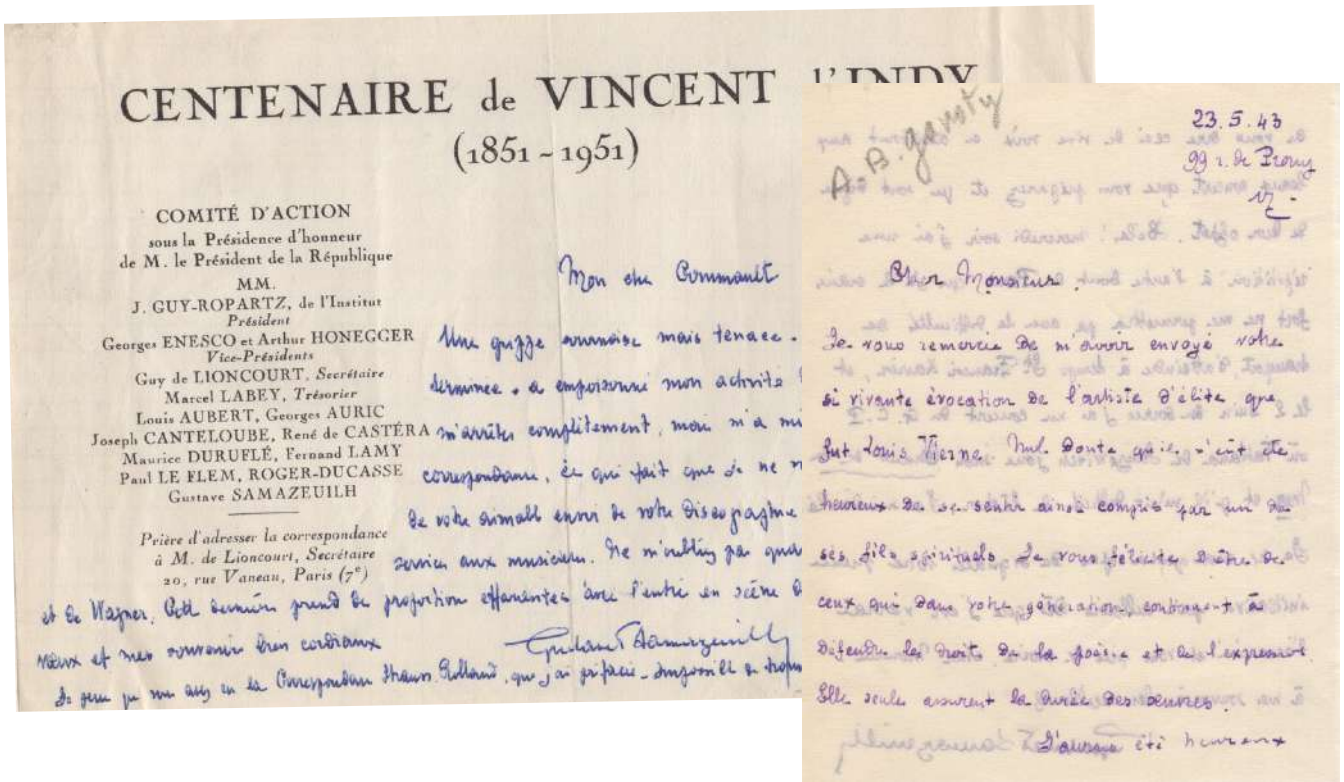 CENTENAIRE de VINCENT d'INDY
(1851-1951)
COMITÉ D'ACTION
sous la Présidence d'honneur
de M. le Président de la République
MM.
J. GUY-ROPARTZ, de l'Institut
Président
Georges ENESCO et Arthur HONEGGER
Vice-Présidents
Guy de LIONCOURT, Secrétaire
Marcel LABEY, Trésorier
Louis AUBERT, Georges AURIC
Joseph CANTELOUBE, René de CASTÉRA
Maurice DURUFLÉ, Fernand LAMY
Paul LE FLEM, ROGER-DUCASSE
Gustave SAMAZEUILH
Prière d'adresser la correspondance
à M. de Lioncourt, Secrétaire
20, rue Vaneau, Paris (7e)
Mon cher Commault
Une grippe sournoise mais tenace -
terminée - a empoisonné mon activité
m'arrêter complètement, mais m'a mi
correspondance, ce qui fait que je ne
de votre aimable envoi de votre discographie
service aux musiciens. Ne m'oubliez pas
et de Wagner. Cette dernière prend de proportion effarantes avec l'entrée en scène
vœux et mes souvenirs bien cordiaux
Gustave Samazeuilh
Je pense que vous avez eu la Correspondance Strauss-Rolland, que j'ai préfacée - impossible de
A. B. gavoty
23.5.43
99 r. de Prony
Cher Monsieur,
Je vous remercie de m'avoir envoyé votre
si vivante évocation de l'artiste d'élite que
fut Louis Vierne. Nul doute qu'il n'eût été
heureux de se sentir ainsi compris par un de
ses fils spirituels. Je vous félicite d'être de
ceux qui dans votre génération, contribuent à
défendre les droits de la poésie et de l'expression.
Elle seule assurent la durée des œuvres.
J'aurais été heureux